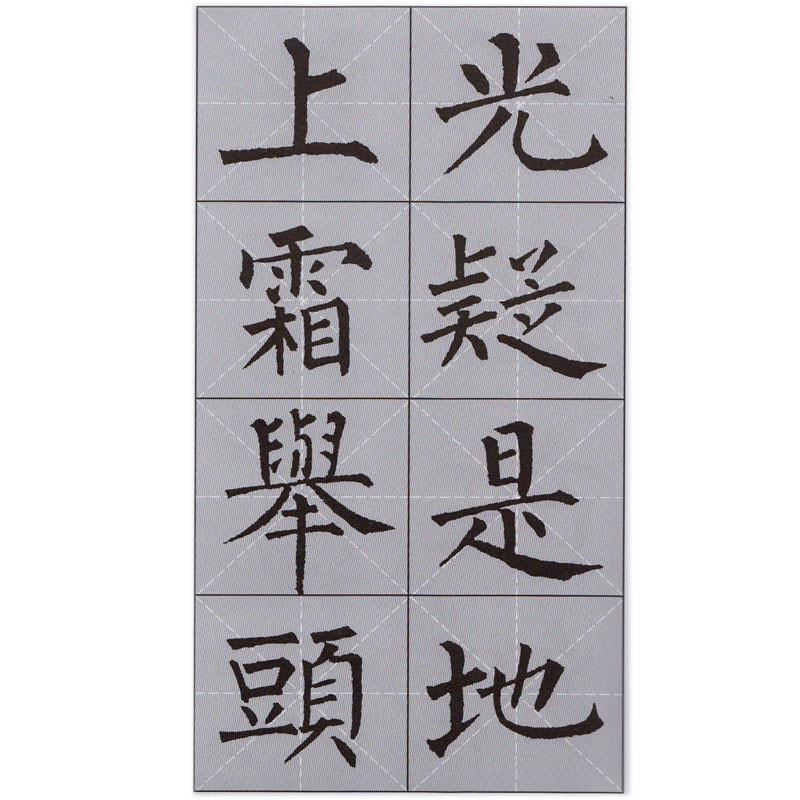 光疑是地
上霜舉頭